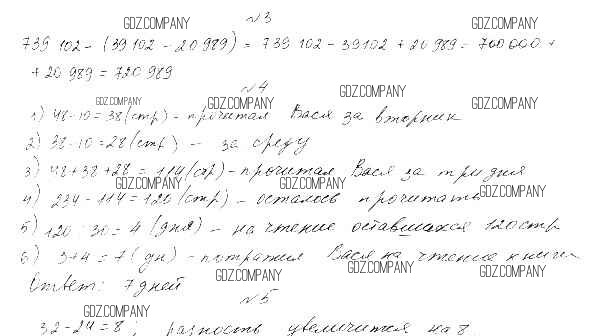 №3
739 102 - (39 102 - 20 989) = 739 102 - 39102 + 20 989 = 700 000 +
+ 20 989 = 720 989
№4
1) 48-10=38 (стр) - прочитал Вася за вторник
2) 38-10=28 (стр) - за среду
3) 48+38+28 = 114 (стр) - прочитал Вася за три дня
4) 234-114=120 (стр) - осталось прочитать
5) 120 : 30 = 4 (дня) - на чтение оставшихся 120 стр
6) 3+4 = 7 (дн) - потратил Вася на чтение книги
Ответ: 7 дней
№5
32-24=8; разность увеличится на 8
GDZ.COMPANY
GDZ.COMPANY
GDZ.COMPANY
GDZ.COMPANY
GDZ.COMPANY
GDZ.COMPANY
GDZ.COMPANY
GDZ.COMPANY
GDZ.COMPANY
GDZ.COMPANY
GDZ.COMPANY
GDZ.COMPANY
GDZ.COMPANY